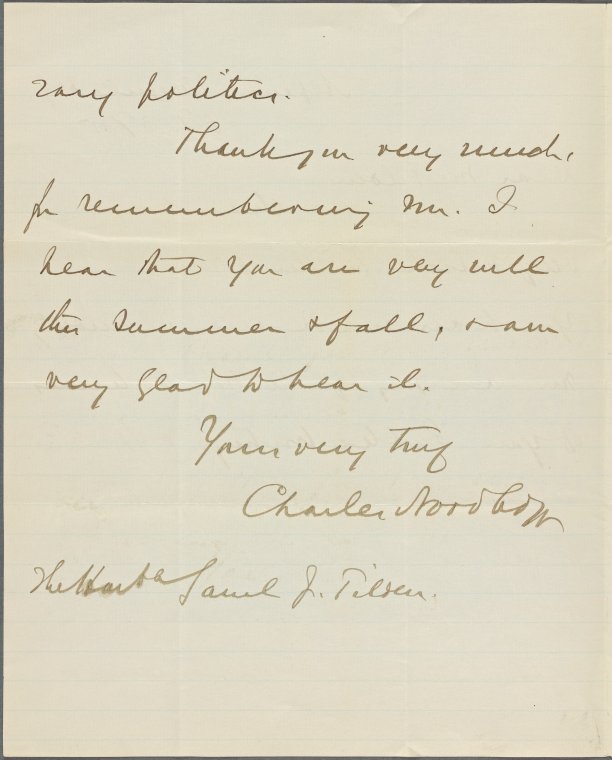 rary politics.
Thank you very much,
for remembering me. I
hear that you are very well
this summer & fall, & am
very glad to hear it.
Yours very truly
Charles Nordhoff
The Honble Saml J. Tilden.